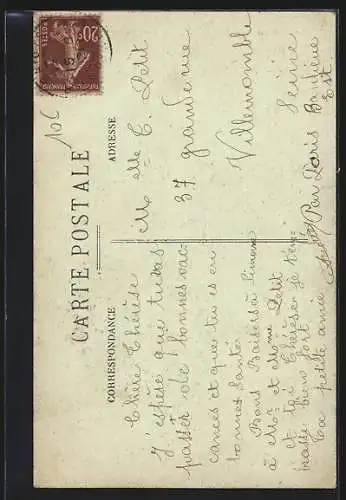 20c
POSTES
10c
CARTE POSTALE
CORRESPONDANCE
ADRESSE
Chère Thérèse
J'espère que tu vas
passer de bonnes vac-
cances et que tu es en
bonnes santé.
Bons Baisers à Simone
à Mr et Mme Petit
et toi Thérèse je t'em-
brasse bien fort
Ta petite amie
Melle C. Petit
37 grande rue
Villemomble
Seine
Par Paris Banlieue
Est